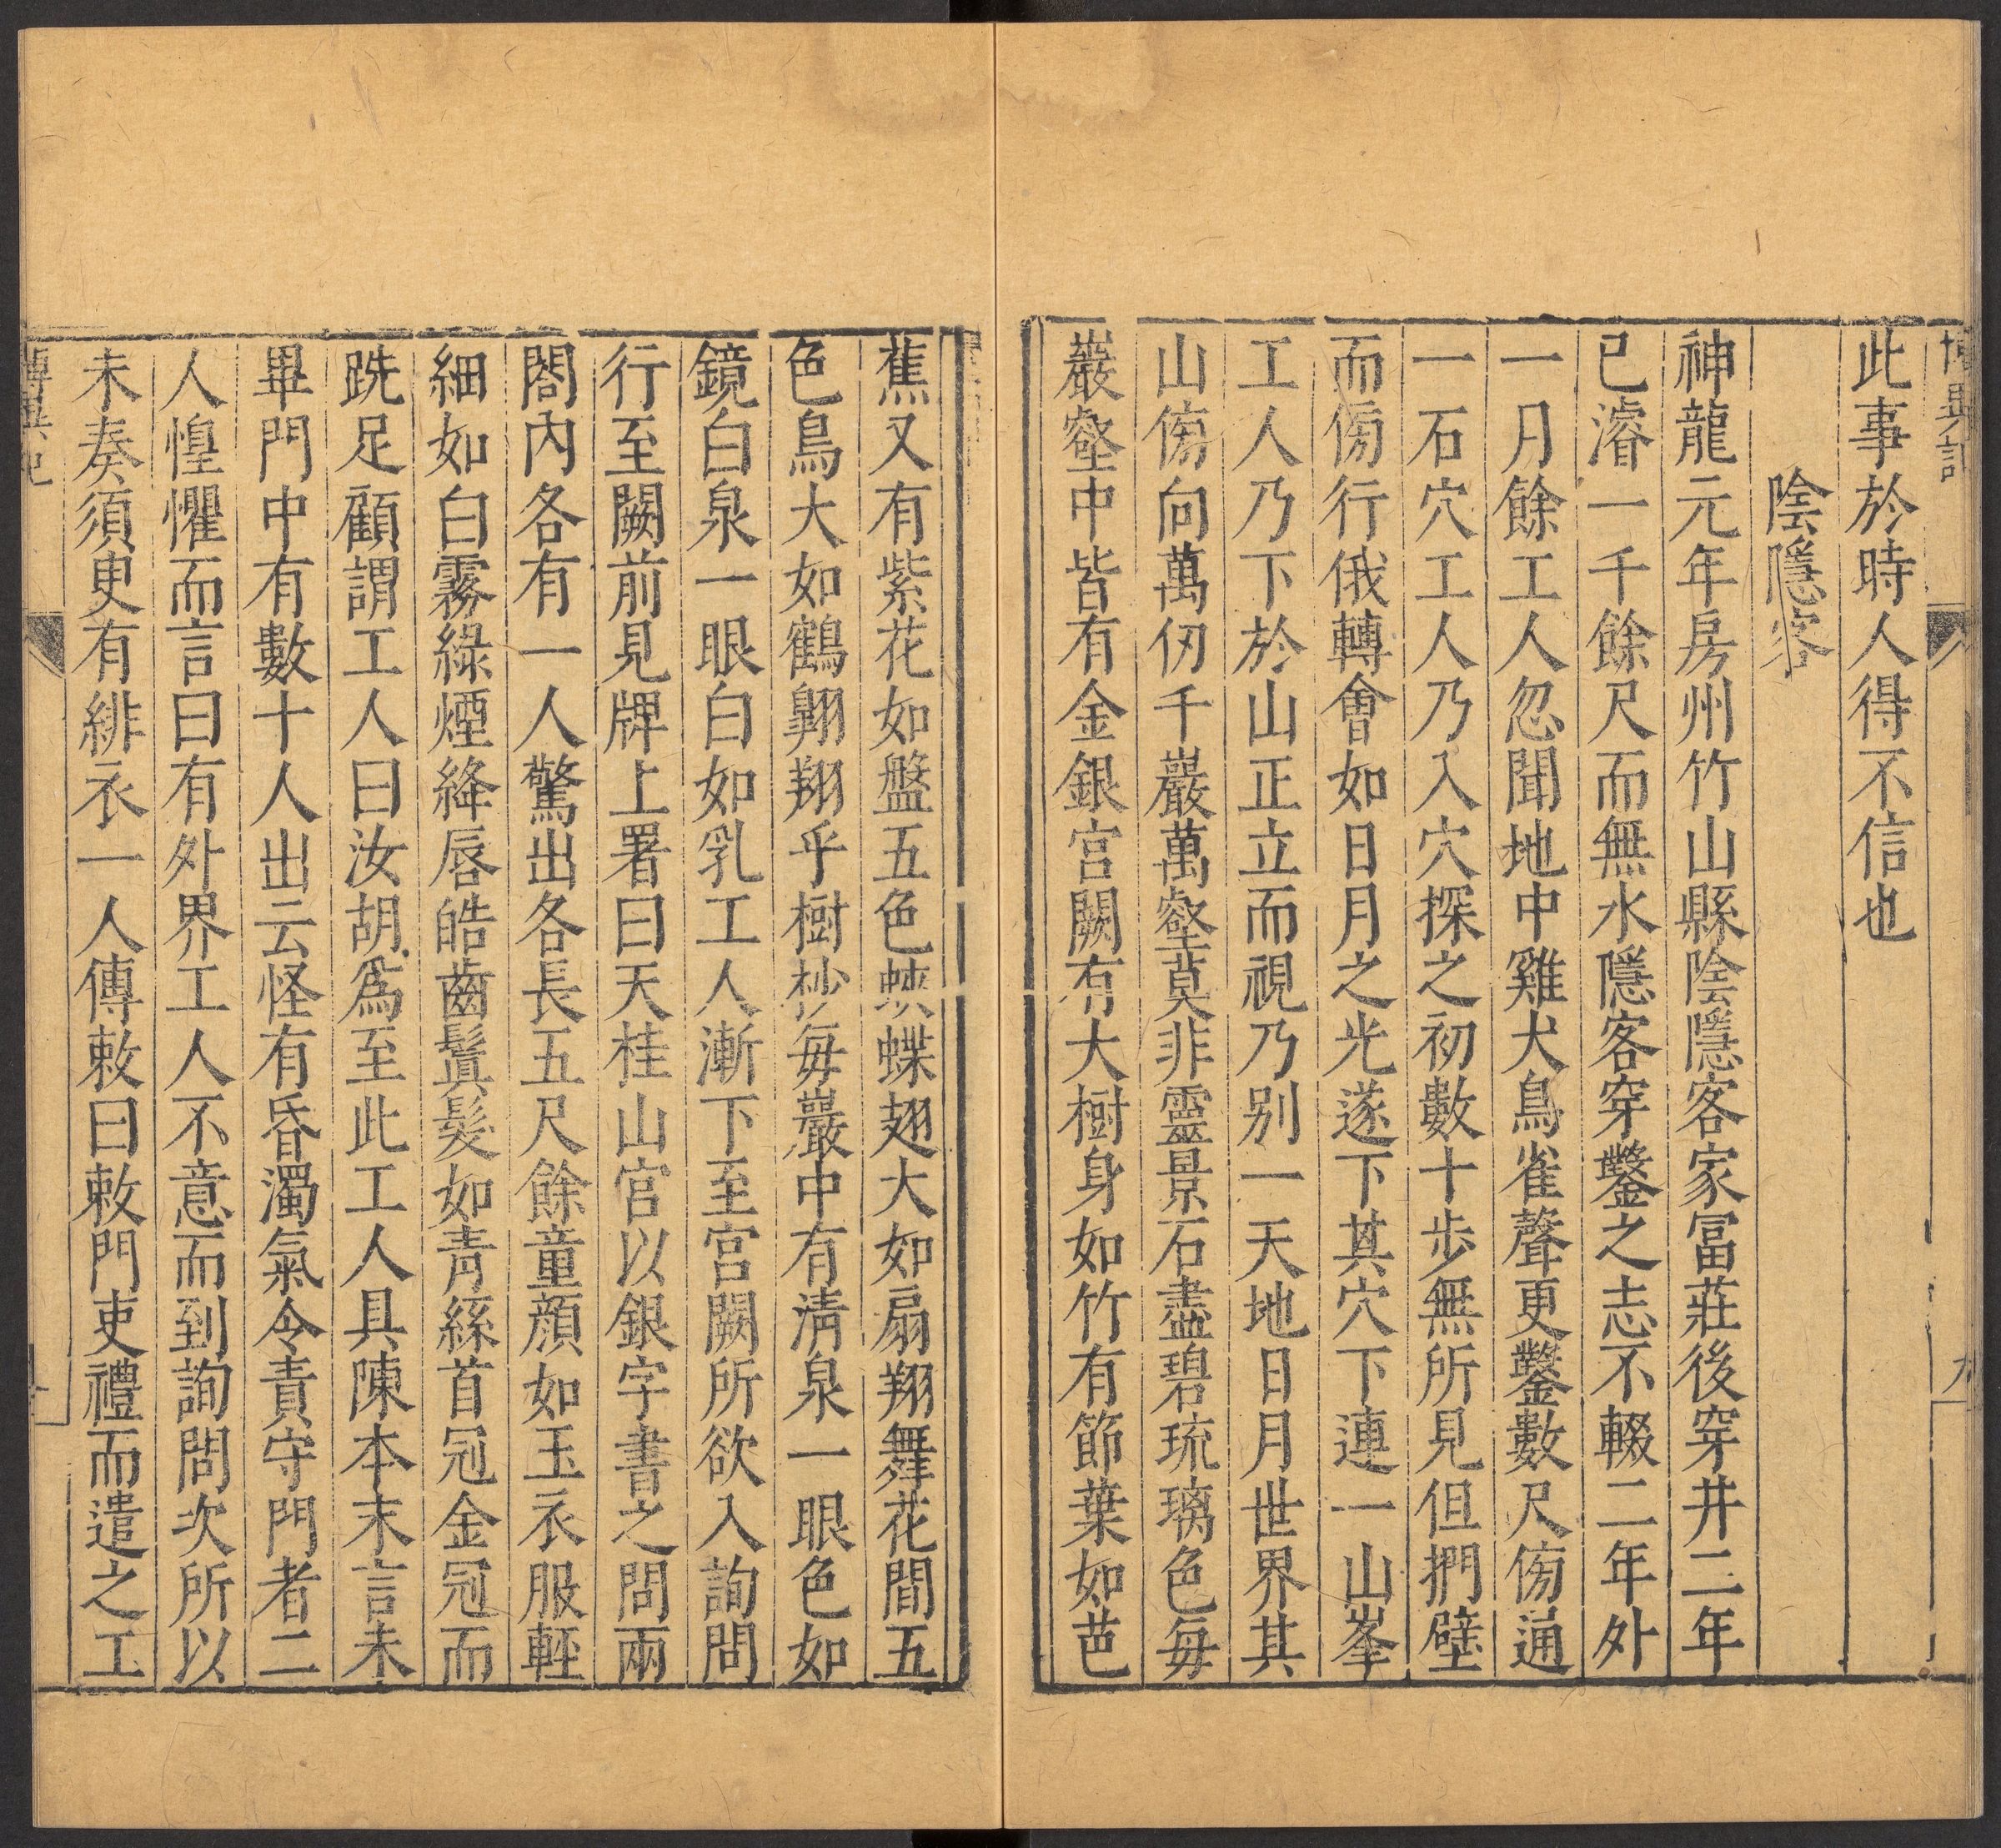 博異記
九
此事於時人得不信也
陰隱客
神龍元年房州竹山縣陰隱客家冨莊後穿井二年
已濬一千餘尺而無水隱客穿鑿之志不輟二年外
一月餘工人忽聞地中雞犬鳥雀聲更鑿數尺傍通
一石穴工人乃入穴探之初數十步無所見但捫壁
而傍行俄轉會如日月之光遂下其穴下連一山峯
工人乃下於山正立而視乃别一天地日月世界其
山傍向萬仞千巖萬壑莫非靈景石盡碧琉璃色每
巖壑中皆有金銀宮闕有大樹身如竹有節葉如芭
蕉又有紫花如盤五色蛺蝶翅大如扇翔舞花間五
色鳥大如鶴翺翔乎樹杪每巖中有清泉一眼色如
鏡白泉一眼白如乳工人漸下至宮闕所欲入詢問
行至闕前見牌上署曰天桂山宮以銀字書之問兩
閤內各有一人驚出各長五尺餘童顏如玉衣服輕
細如白霧綠煙絳唇皓齒鬒髮如青絲首冠金冠而
跣足顧謂工人曰汝胡爲至此工人具陳本末言未
畢門中有數十人出云怪有昏濁氣令責守門者二
人惶懼而言曰有外界工人不意而到詢問次所以
未奏須㬰有緋衣一人傳敕曰敕門吏禮而遣之工
博異記
十